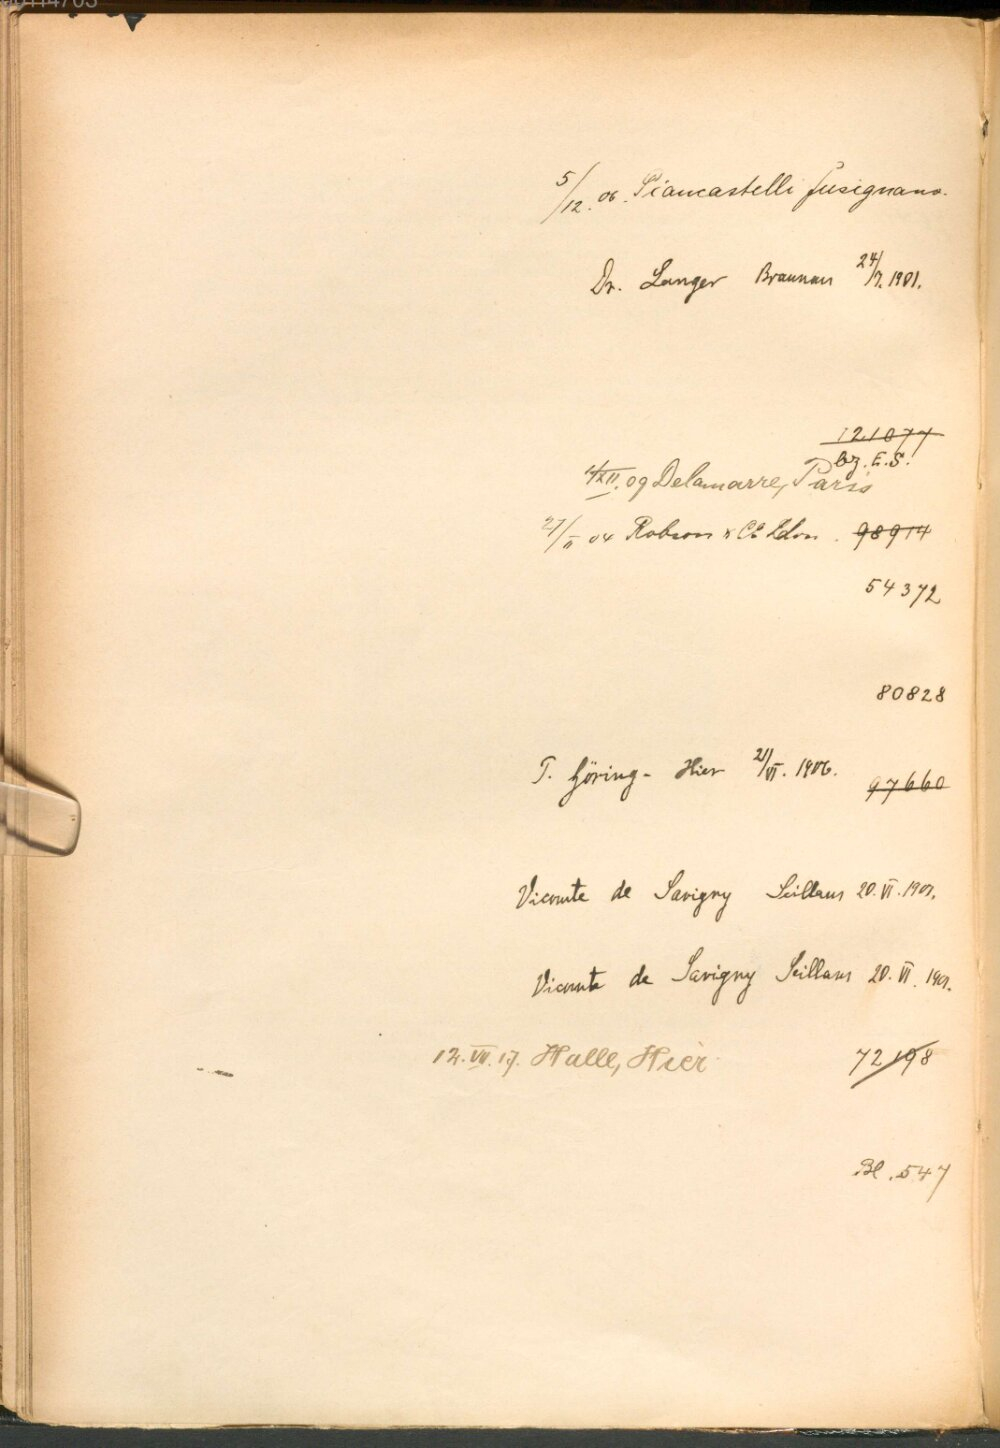 5/12. 06. Piancastelli Fusignano.
Dr. Langer Braunau 24/7. 1901.
121077
bz. E.S.
4/XII. 09 Delamarre, Paris
27/II 04 Robson & Co Ldon. 98914
54372
80828
T. Göring - Hier 21/VI. 1906.
97660
Vicomte de Savigny Seillans 20. VI. 1901.
Vicomte de Savigny Seillans 20. VI. 1901.
12. VII. 17. Halle, Hier 72198
Bl. 547